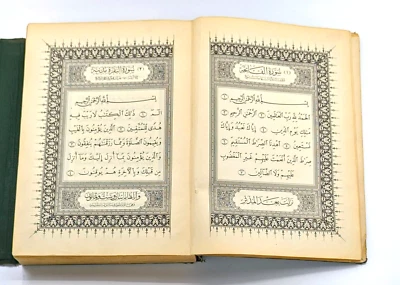 (١) سورة الفاتحة
بسم الله الرحمن الرحيم ①
الحمد لله رب العالمين ② الرحمن الرحيم ③
ملك يوم الدين ④ إياك نعبد وإياك
نستعين ⑤ اهدنا الصرط المستقيم ⑥
صرط الذين أنعمت عليهم غير المغضوب
عليهم ولا الضالين ⑦
نزلت بعد المدثر
(٢) سورة البقرة مدنية
بسم الله الرحمن الرحيم
الم ① ذلك الكتب لا ريب فيه
هدى للمتقين ② الذين يؤمنون بالغيب
ويقيمون الصلوة ومما رزقنهم ينفقون ③
والذين يؤمنون بما أنزل إليك وما أنزل
من قبلك وبالآخرة هم يوقنون ④